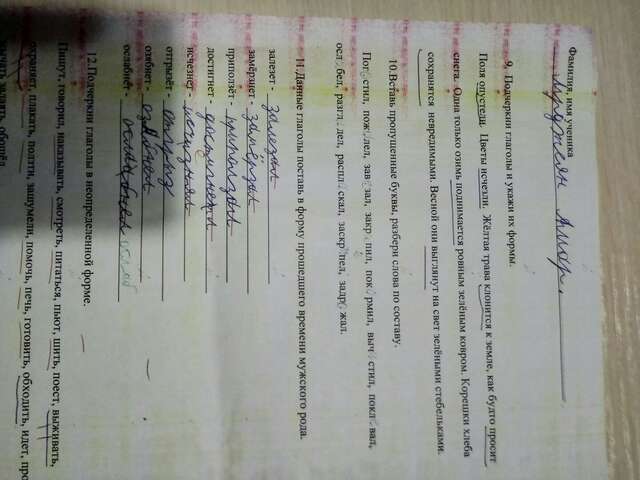 Фамилия, имя ученика
9. Подчеркни глаголы и укажи их формы.
Поля опустели. Цветы исчезли. Жёлтая трава клонится к земле, как будто просит
снега. Одна только озимь поднимается ровным зелёным ковром. Корешки хлеба
сохранятся невредимыми. Весной они выглянут на свет зелёными стебельками.
10.Вставь пропущенные буквы, разбери слова по составу.
Пог стил, пож лел, зав зал, закр пил, пок рмил, выч стил, покл вал,
осл бел, разгл дел, распл скал, заскр пел, задр жал.
11.Данные глаголы поставь в форму прошедшего времени мужского рода.
залезет - залезал
замёрзнет - замёрзал
приползёт - приползал
достигнет -
исчезнет -
отгрызёт - отгрыз
озябнет -
ослабнет -
12.Подчеркни глаголы в неопределенной форме.
Пишут, говорил, наказывать, смотреть, питаться, пьют, шить, поест, выживать,
охраняет, плакать, ползти, зашумели, помочь, печь, готовить, обходить, идет,